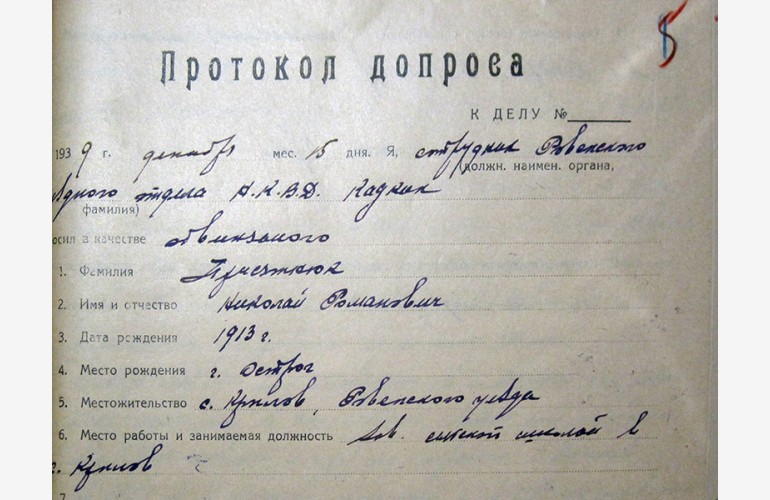 5
Протокол допроса
К ДЕЛУ №
1939 г. декабря мес. 15 дня. Я, сотрудник Ровенского
(должн. наимен. органа,
дного отдела Н.К.В.Д.
фамилия)
осил в качестве обвиняемого
1. Фамилия
2. Имя и отчество Николай Романович
3. Дата рождения 1913 г.
4. Место рождения г. Острог
5. Местожительство с. Крилов, Ровенского уезда
6. Место работы и занимаемая должность Зав. школой в
Крилов
7